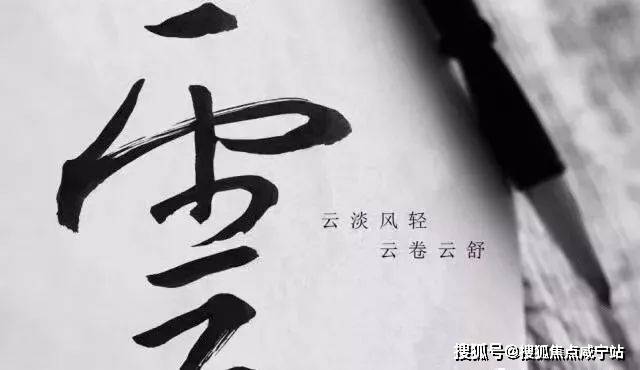 雲
云淡风轻
云卷云舒
搜狐号@搜狐焦点咸宁站